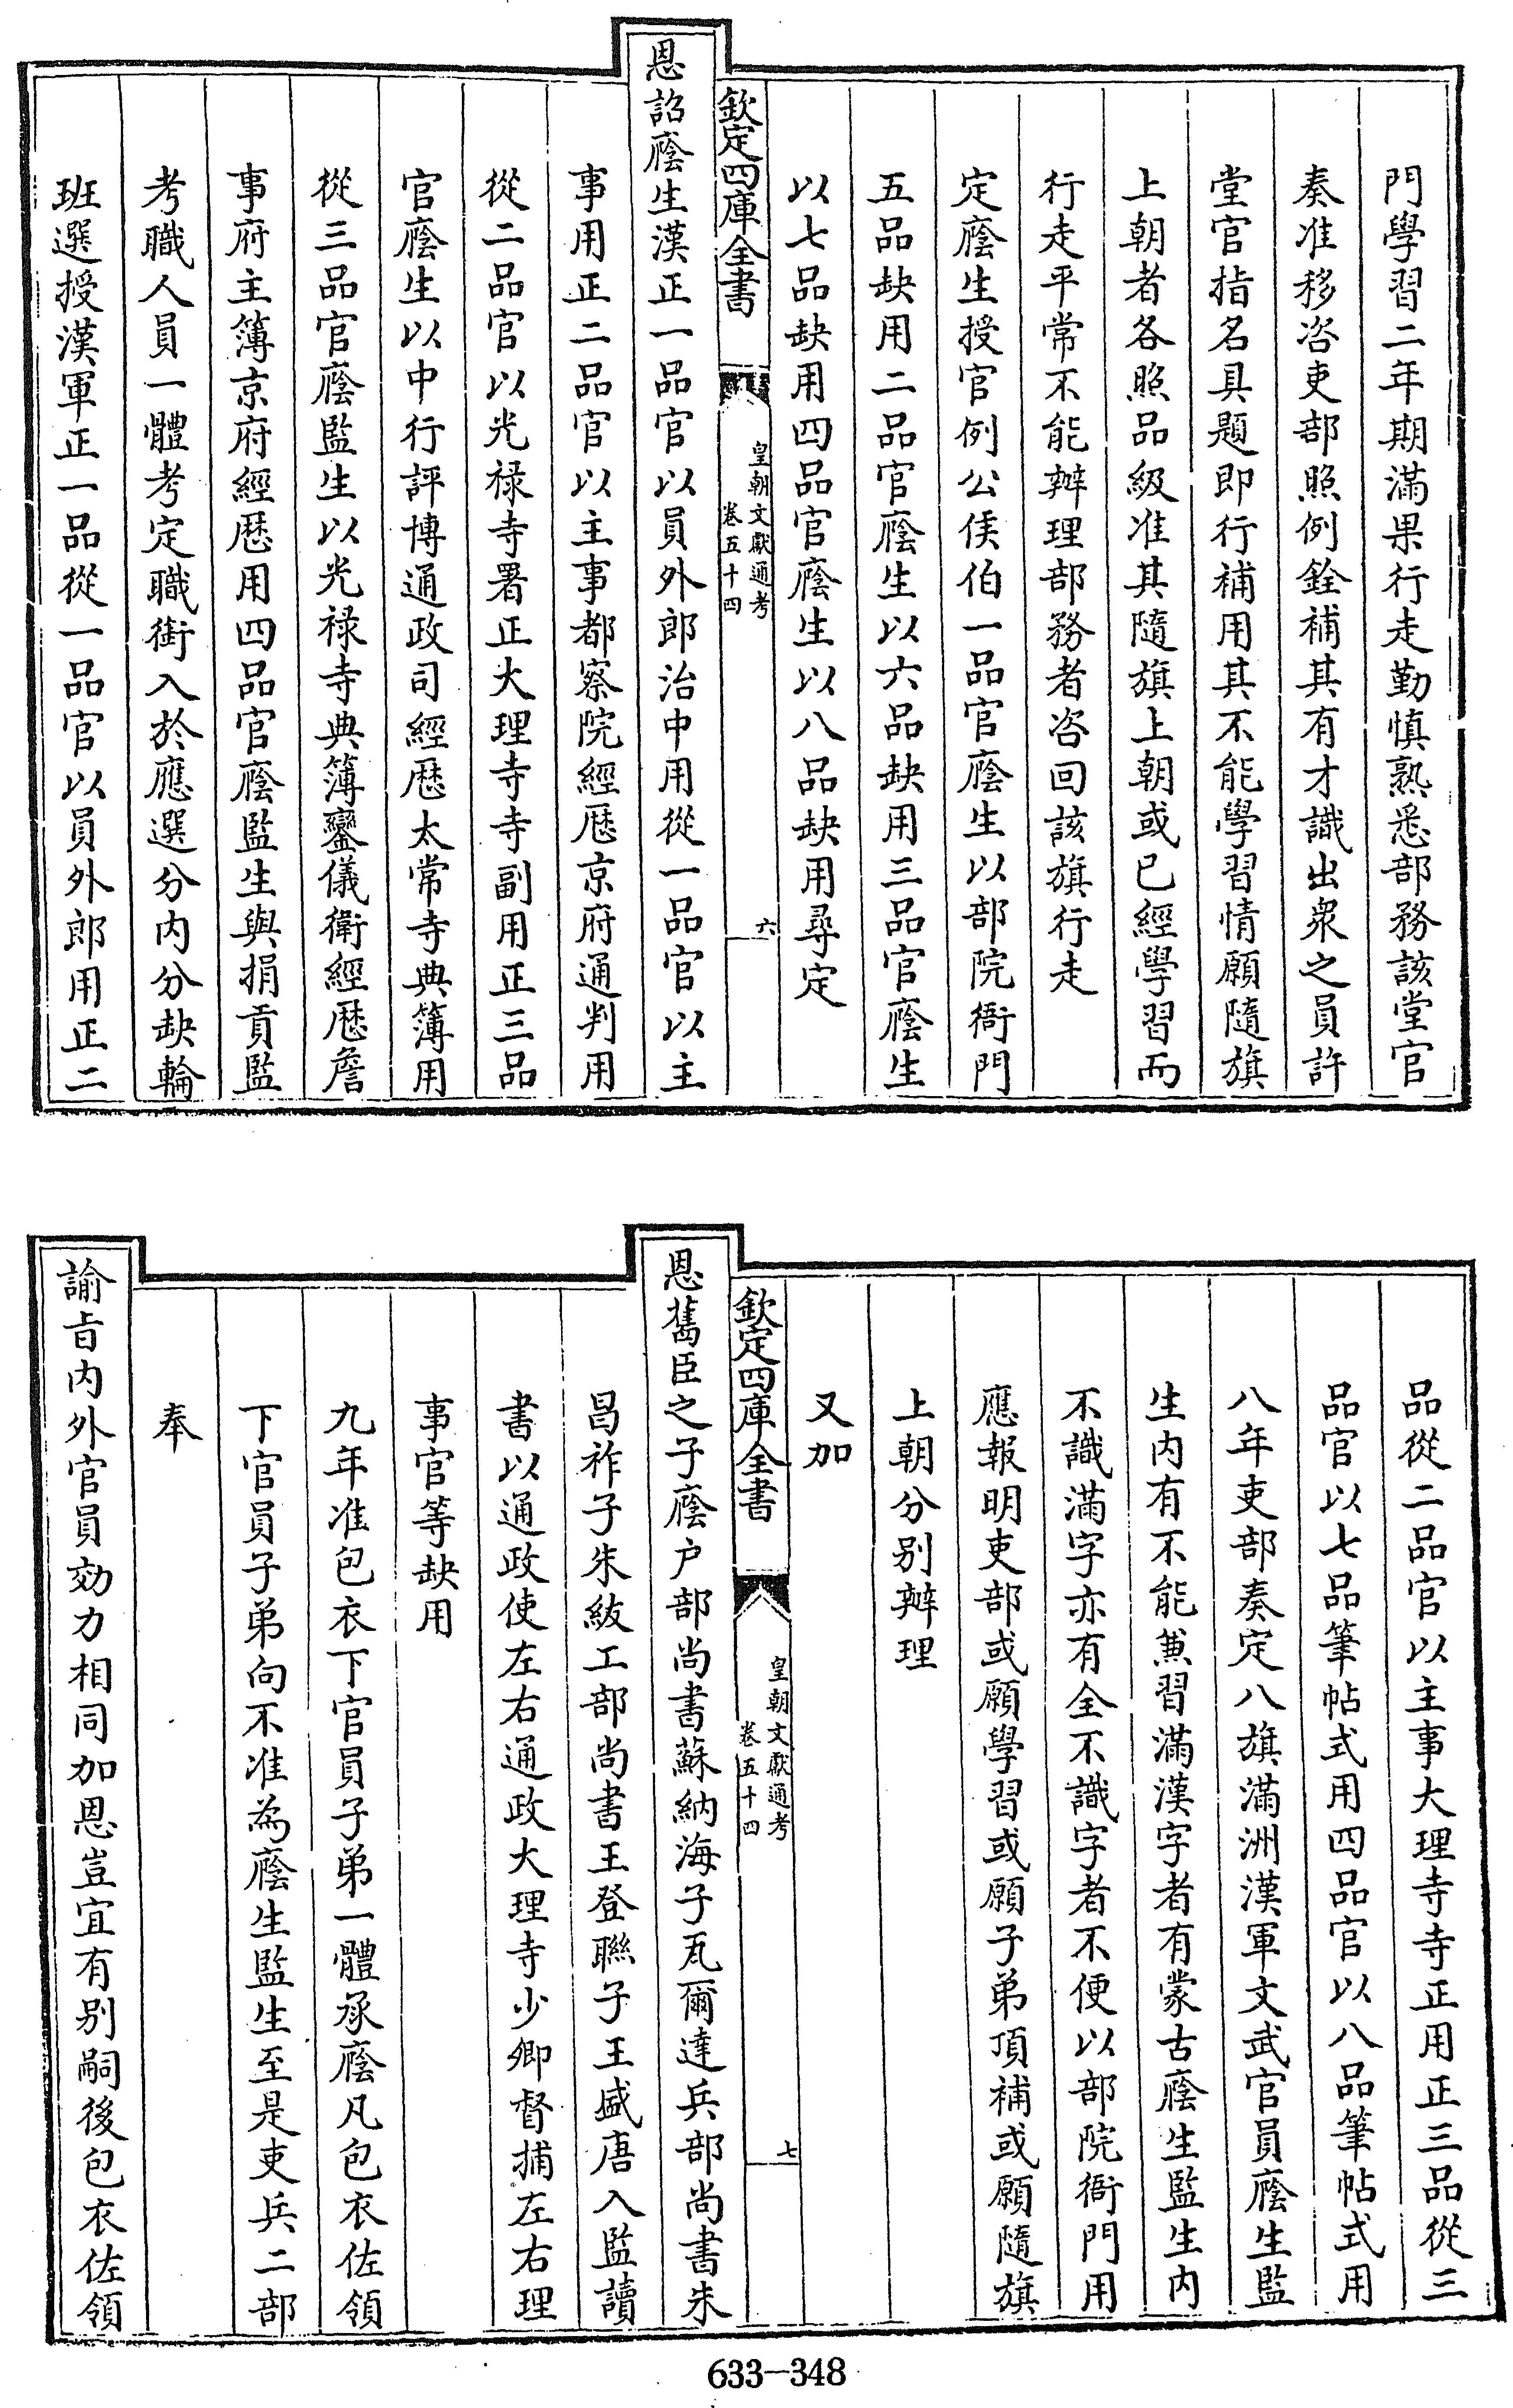 門學習二年期滿果行走勤慎熟悉部務該堂官
奏准移咨吏部照例銓補其有才識出衆之員許
堂官指名具題即行補用其不能學習情願隨旗
上朝者各照品級准其隨旗上朝或已經學習而
行走平常不能辦理部務者咨回該旗行走
定廕生授官例公侯伯一品官廕生以部院衙門
五品缺用二品官廕生以六品缺用三品官廕生
以七品缺用四品官廕生以八品缺用尋定
欽定四庫全書
皇朝文獻通考
卷五十四
六
恩詔廕生漢正一品官以員外郎治中用從一品官以主
事用正二品官以主事都察院經歷京府通判用
從二品官以光禄寺署正大理寺寺副用正三品
官廕生以中行評博通政司經歷太常寺典簿用
從三品官廕監生以光禄寺典簿鑾儀衛經歷詹
事府主簿京府經歷用四品官廕監生與捐貢監
考職人員一體考定職銜入於應選分内分缺輪
班選授漢軍正一品從一品官以員外郎用正二
品從二品官以主事大理寺寺正用正三品從三
品官以七品筆帖式用四品官以八品筆帖式用
八年吏部奏定八旗滿洲漢軍文武官員廕生監
生内有不能兼習滿漢字者有蒙古廕生監生内
不識滿字亦有全不識字者不便以部院衙門用
應報明吏部或願學習或願子弟頂補或願隨旗
上朝分别辦理
又加
欽定四庫全書
皇朝文獻通考
卷五十四
七
恩舊臣之子廕户部尚書蘇納海子瓦爾達兵部尚書朱
昌祚子朱紱工部尚書王登聯子王盛唐入監讀
書以通政使左右通政大理寺少卿督捕左右理
事官等缺用
九年准包衣下官員子弟一體承廕凡包衣佐領
下官員子弟向不准為廕生監生至是吏兵二部
奉
諭旨内外官員効力相同加恩豈宜有别嗣後包衣佐領
633-348